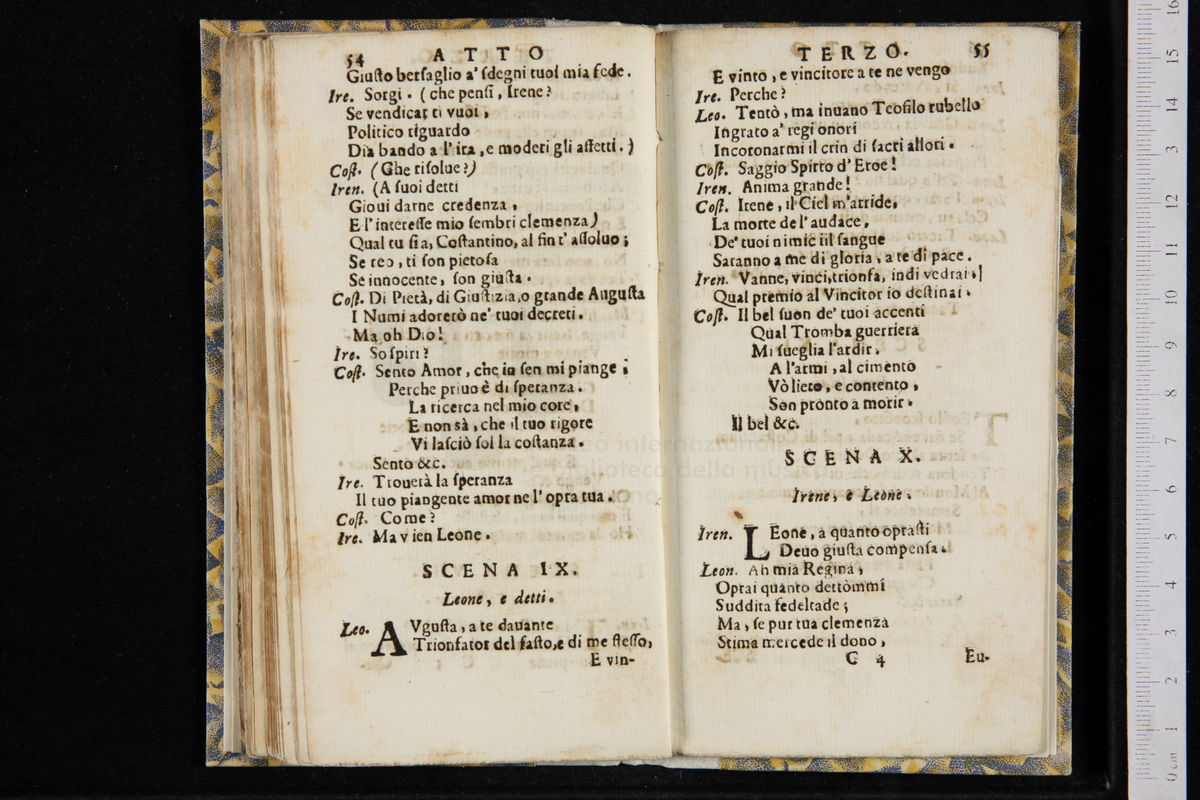 54 ATTO
Giuſto berſaglio a' ſdegni tuoi mia fede.
Ire. Sorgi. (che penſi, Irene?
Se vendicar ti vuoi,
Politico riguardo
Dia bando a l' ira, e moderi gli affetti.)
Coſt. (Che riſolue?)
Iren. (A ſuoi detti
Gioui darne credenza,
E l' intereſſe mio ſembri clemenza)
Qual tu ſia, Coſtantino, al fin t' aſſoluo;
Se reo, ti ſon pietoſa
Se innocente, ſon giuſta.
Coſt. Di Pietà, di Giuſtizia, o grande Auguſta
I Numi adorerò ne' tuoi decreti.
Ma oh Dio!
Ire. Soſpiri?
Coſt. Sento Amor, che in ſen mi piange;
Perche priuo è di ſperanza.
La ricerca nel mio core,
E non sà, che il tuo rigore
Vi laſciò ſol la coſtanza.
Sento &c.
Ire. Trouerà la ſperanza
Il tuo piangente amor ne l' opra tua.
Coſt. Come?
Ire. Ma vien Leone.
SCENA IX.
Leone, e detti.
Leo. AVguſta, a te dauante
Trionfator del faſto, e di me ſteſſo,
E vin-
TERZO. 55
E vinto, e vincitore a te ne vengo
Ire. Perche?
Leo. Tentò, ma inuano Teofilo rubello
Ingrato a' regi onori
Incoronarmi il crin di ſacri allori.
Coſt. Saggio Spirto d' Eroe!
Iren. Anima grande!
Coſt. Irene, il Ciel m'arride,
La morte de l' audace,
De' tuoi nimici il ſangue
Saranno a me di gloria, a te di pace.
Iren. Vanne, vinci, trionfa, indi vedrai,
Qual premio al Vincitor io deſtinai.
Coſt. Il bel ſuon de' tuoi accenti
Qual Tromba guerriera
Mi ſueglia l'ardir.
A l'armi, al cimento
Vò lieto, e contento,
Son pronto a morir.
Il bel &c.
SCENA X.
Irene, e Leone.
Iren. LEone, a quanto opraſti
Deuo giuſta compenſa.
Leon. Ah mia Regina,
Oprai quanto dettòmmi
Suddita fedeltade;
Ma, ſe pur tua clemenza
Stima mercede il dono,
C 4 Eu-